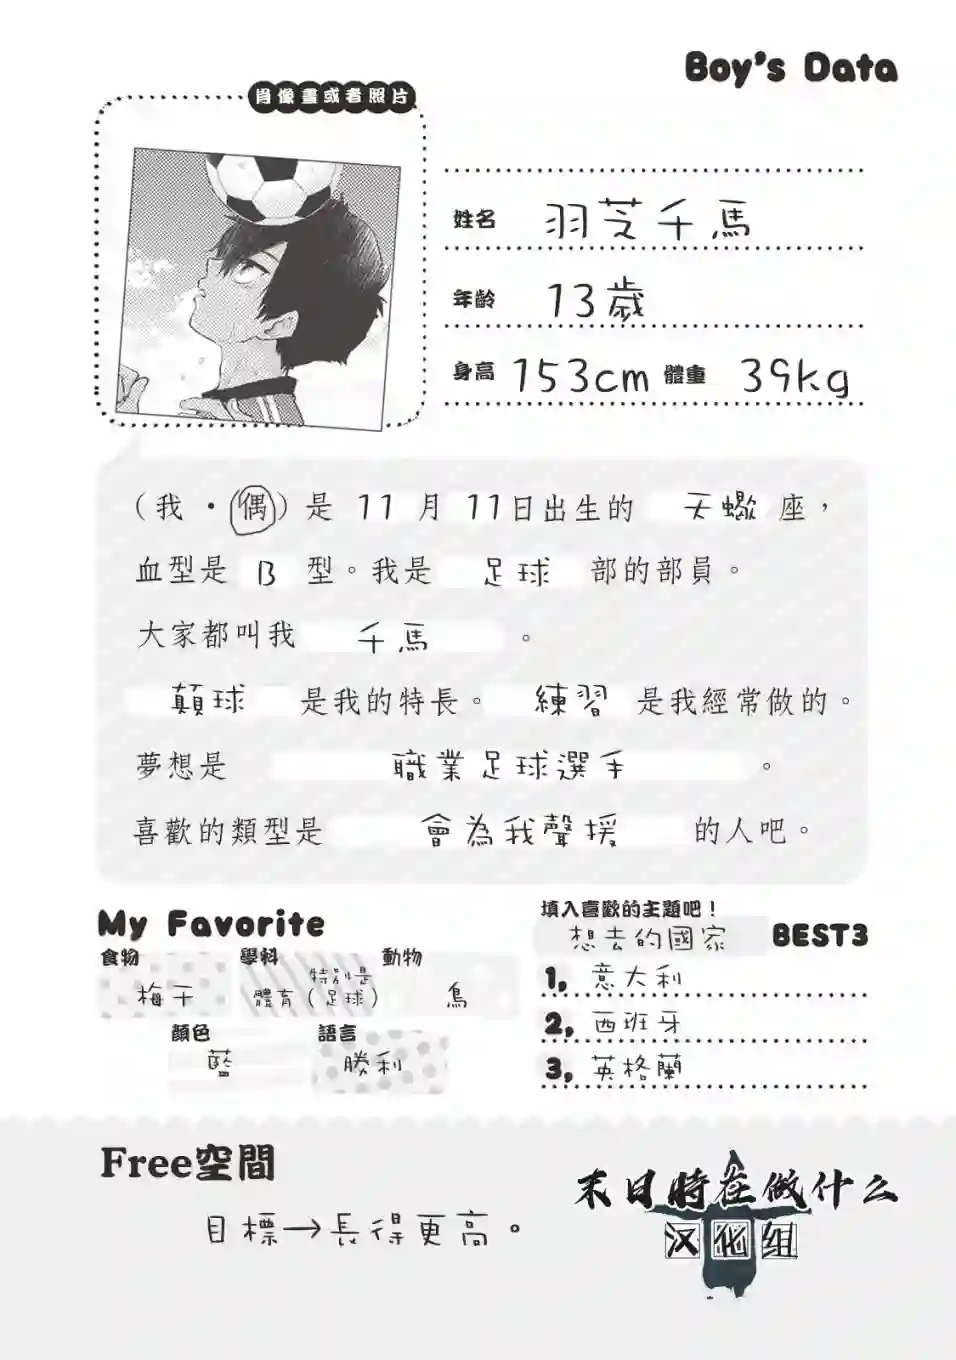 Boy's Data
肖像畫或者照片
姓名 羽芝千馬
年齡 13歲
身高 153cm 體重 39kg
（我・偶）是 11 月 11日出生的 天蠍 座，
血型是 B 型。我是 足球 部的部員。
大家都叫我 千馬 。
顛球 是我的特長。 練習 是我經常做的。
夢想是 職業足球選手 。
喜歡的類型是 會為我聲援 的人吧。
My Favorite
食物 梅干
學科 體育（特別是足球）
動物 鳥
顏色 藍
語言 勝利
填入喜歡的主題吧！
想去的國家 BEST3
1, 意大利
2, 西班牙
3, 英格蘭
Free空間
目標→長得更高。
末日時在做什么
汉化组